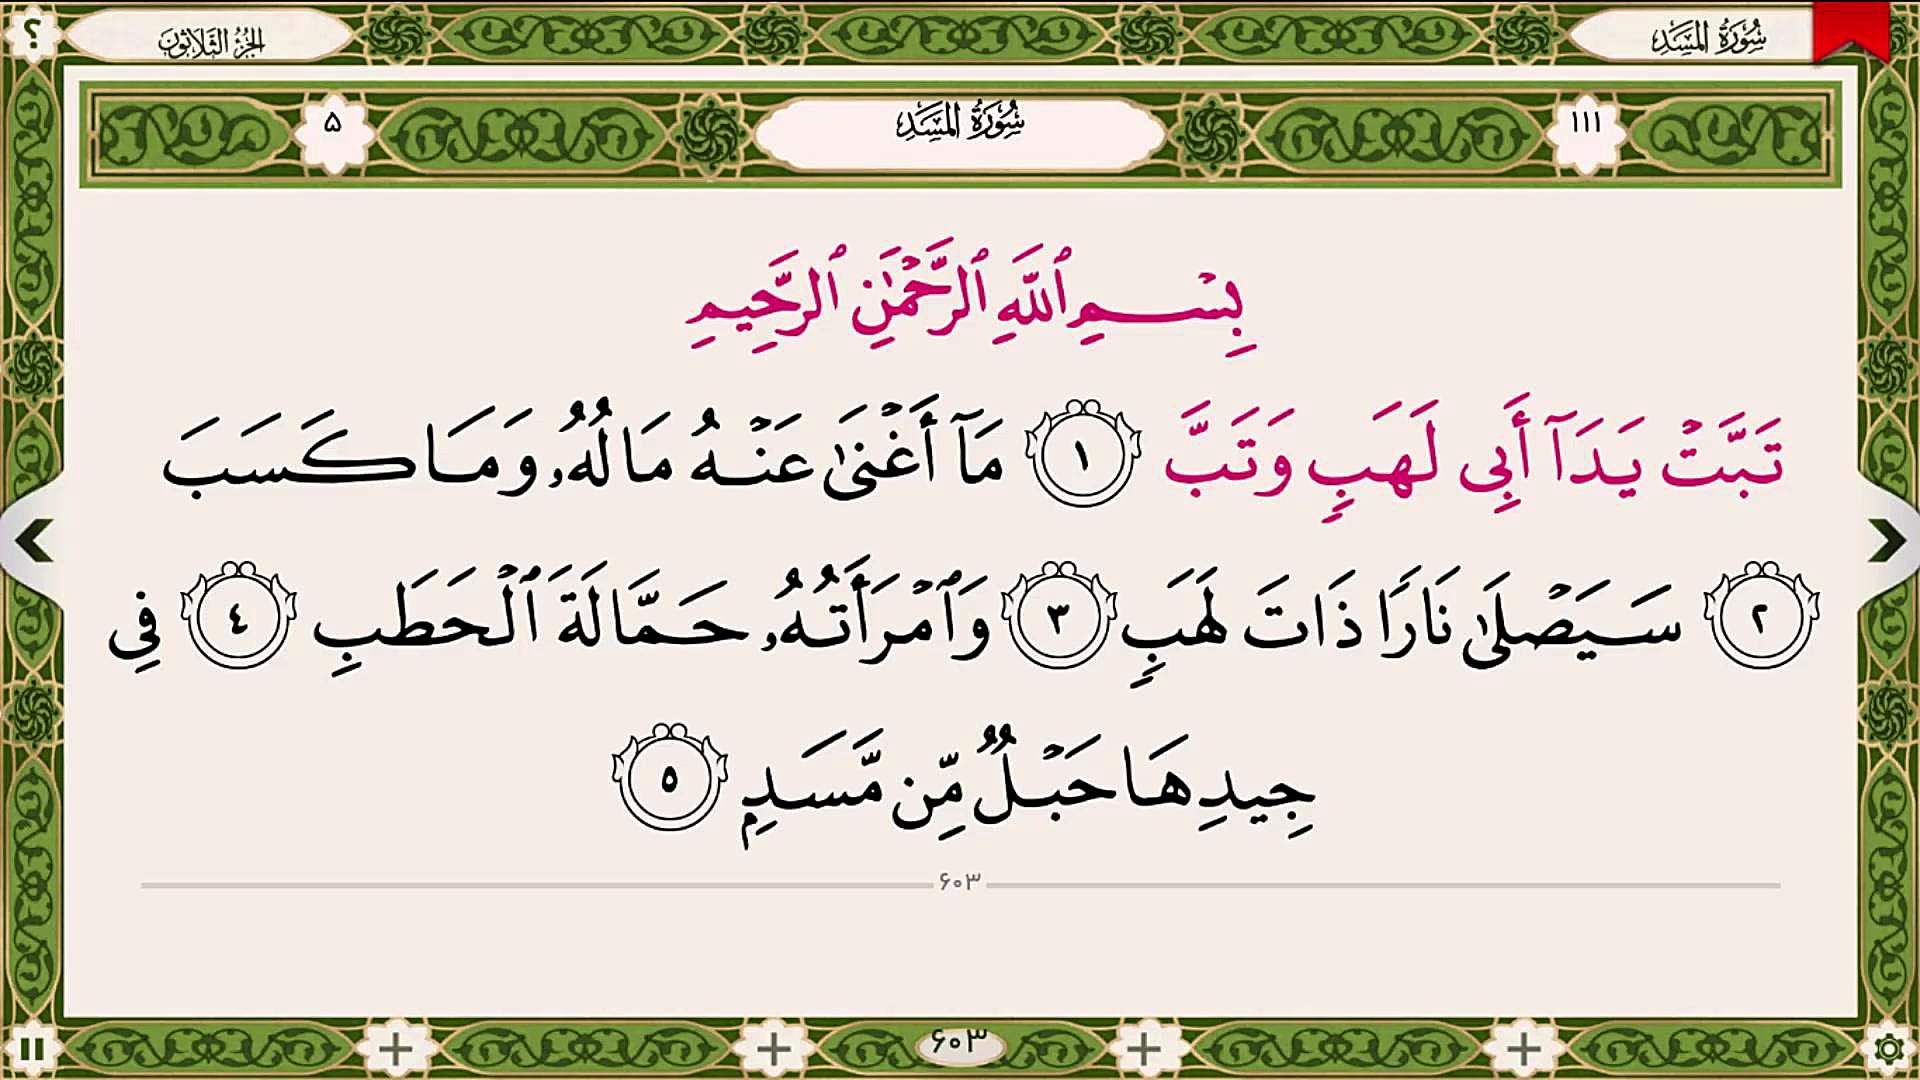 ؟
الجزء الثلاثون
سورة المسد
۵
سُورَةُ المَسَدِ
١١١
بِسْمِ ٱللَّهِ ٱلرَّحْمَٰنِ ٱلرَّحِيمِ
تَبَّتْ يَدَآ أَبِى لَهَبٍ وَتَبَّ ١ مَآ أَغْنَىٰ عَنْهُ مَالُهُۥ وَمَا كَسَبَ
٢ سَيَصْلَىٰ نَارًا ذَاتَ لَهَبٍ ٣ وَٱمْرَأَتُهُۥ حَمَّالَةَ ٱلْحَطَبِ ٤ فِى
جِيدِهَا حَبْلٌ مِّن مَّسَدٍۭ ٥
۶۰۳
۶۰۳